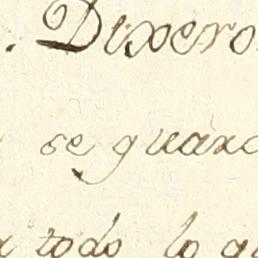 . Dixero
se guard
todo lo q